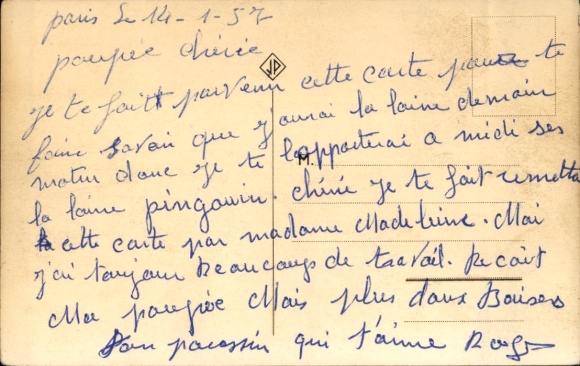 paris Le 14-1-57
poupée chérie
JP
je te fait parvenir cette carte pour te
faire savoir que j aurai la laine demain
matin donc je te l'apporterai a midi ses
M.
la laine pingouin. chérie je te fait remettre
cette carte par madame Madeleine. Moi
j'ai toujour beaucoups de travail. Recoit
Ma poupée Mais plus doux Baisers
Ton qui t'aime Roger